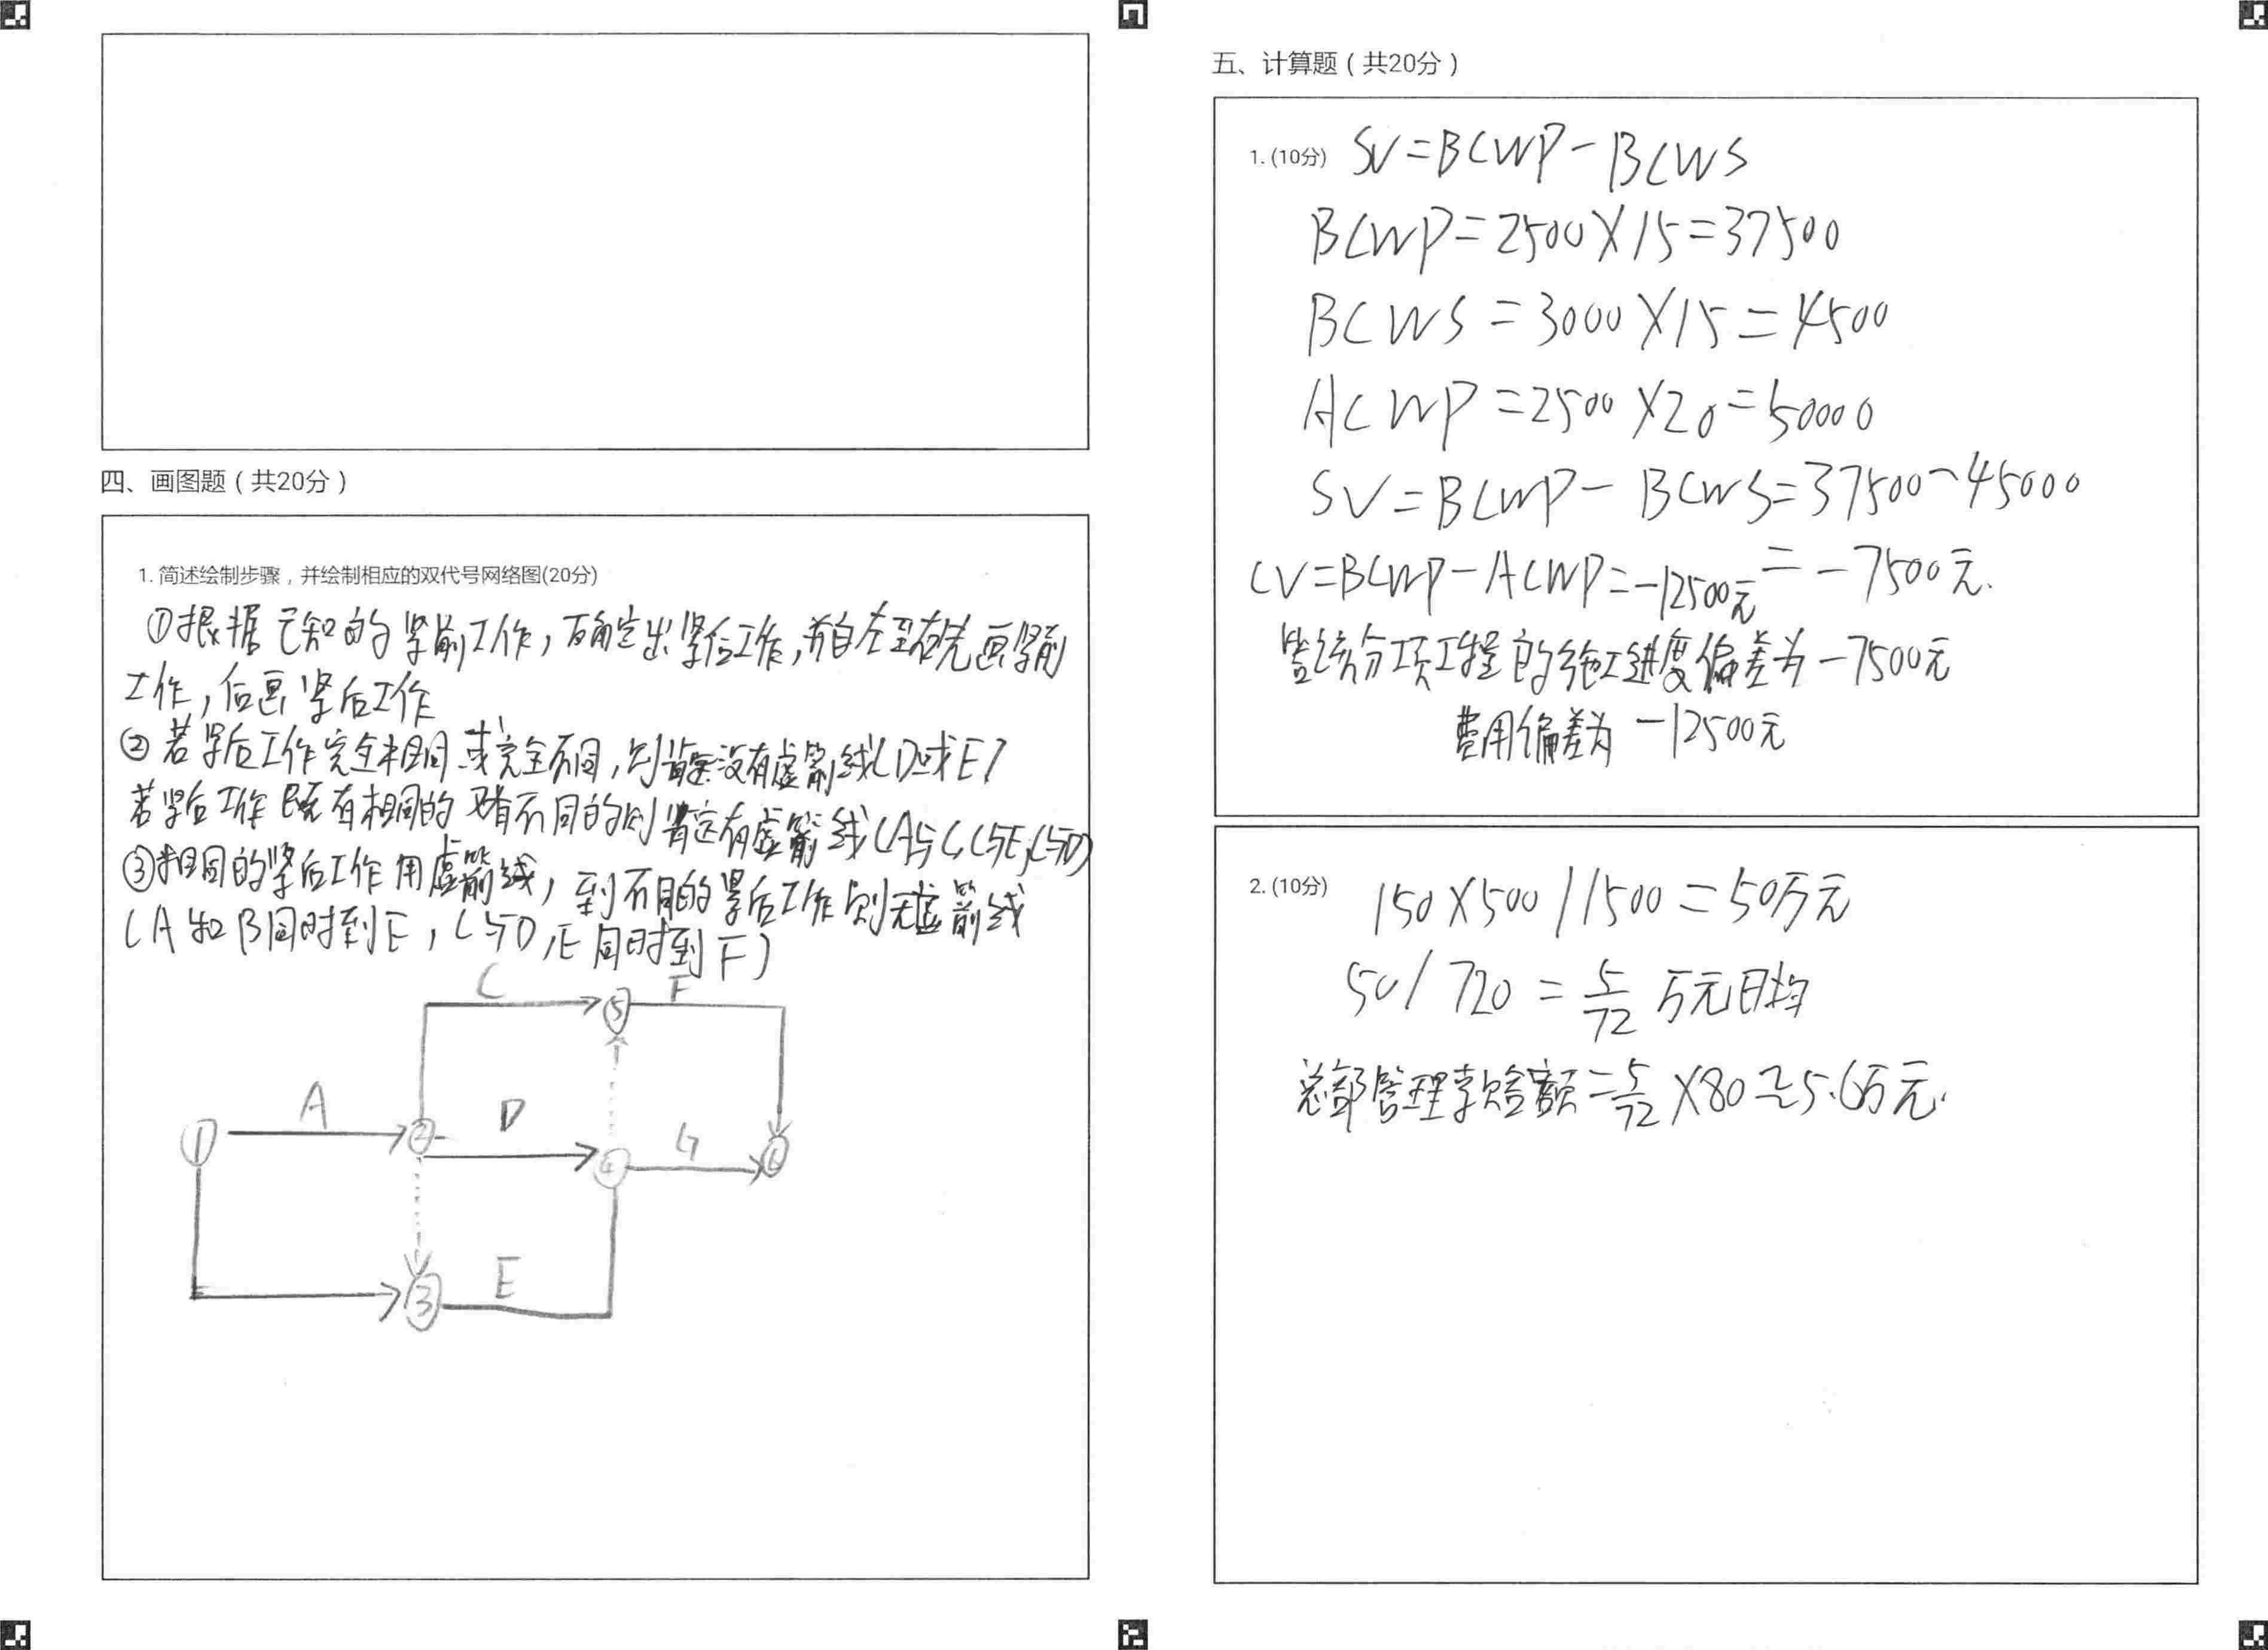 四、画图题（共20分）
1. 简述绘制步骤，并绘制相应的双代号网络图(20分)
①根据已知的紧前工作，确定出紧后工作，并自左至右先画紧前
工作，后画紧后工作
②若紧后工作完全相同或完全不同，则肯定没有虚箭线(D或E)
若紧后工作既有相同的又有不同的则肯定有虚箭线(A与C,C与E,C与D)
③相同的紧后工作用虚箭线，到不同的紧后工作则无虚箭线
(A和B同时到E，C与D,E同时到F)
C ⑤ F
A D G
① ② ④ ⑥
E
③
五、计算题（共20分）
1. (10分) SV=BCWP-BCWS
BCWP=2500×15=37500
BCWS=3000×15=4500
ACWP=2500×20=50000
SV=BCWP-BCWS=37500-45000
=-7500元.
CV=BCWP-ACWP=-12500元
该分项工程的施工进度偏差为-7500元
费用偏差为-12500元
2. (10分) 150×500/1500=50万元
50/720=5/72万元日均
总部管理索赔额=5/72×80≈5.6万元.